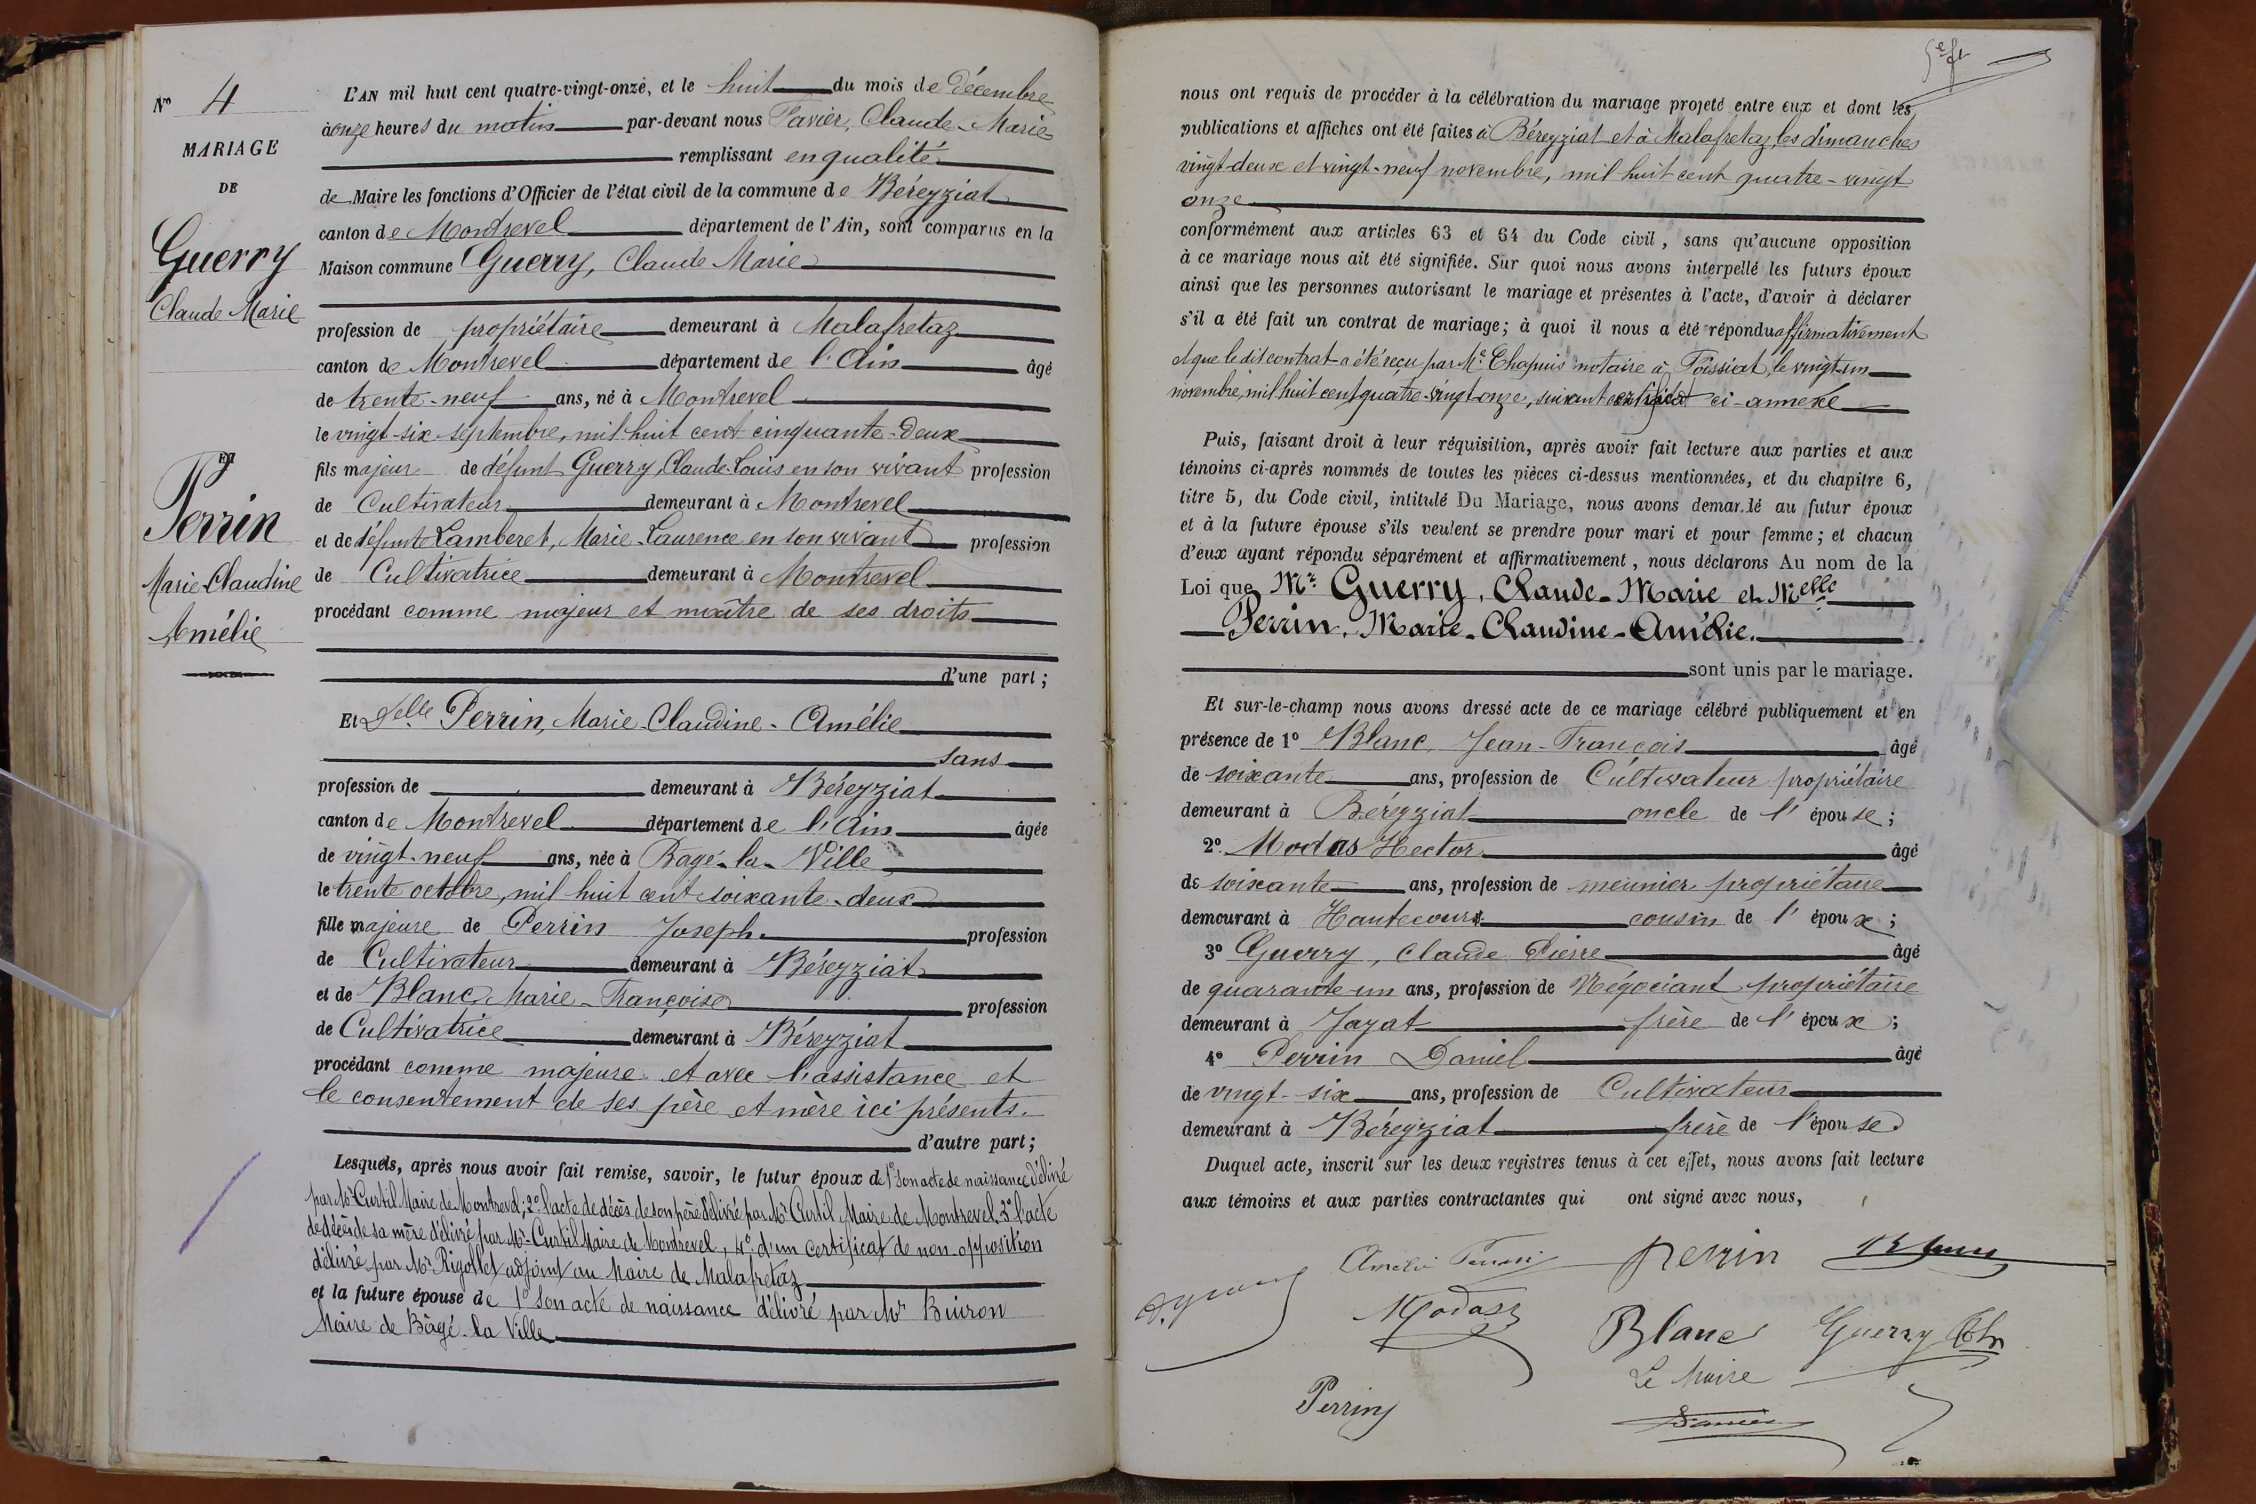 N° 4
MARIAGE
DE
Guerry
Claude Marie
ET
Perrin
Marie Claudine
Amélie
L'AN mil huit cent quatre-vingt-onze, et le huit du mois de décembre
à onze heures du matin par-devant nous Favier, Claude-Marie
remplissant en qualité
de Maire les fonctions d'Officier de l'état civil de la commune de Béreyziat
canton de Montrevel département de l'Ain, sont comparus en la
Maison commune Guerry, Claude Marie
profession de propriétaire demeurant à Malafretaz
canton de Montrevel département de l'Ain âgé
de trente-neuf ans, né à Montrevel
le vingt-six septembre, mil huit cent cinquante-deux
fils majeur de défunt Guerry, Claude-Louis en son vivant profession
de Cultivateur demeurant à Montrevel
et de défunte Lamberet, Marie-Laurence en son vivant profession
de Cultivatrice demeurant à Montrevel
procédant comme majeur et maître de ses droits
d'une part;
Et Delle Perrin, Marie-Claudine-Amélie
sans
profession de demeurant à Béreyziat
canton de Montrevel département de l'Ain âgée
de vingt-neuf ans, née à Bagé-la-Ville
le trente octobre, mil huit cent soixante-deux
fille majeure de Perrin Joseph profession
de Cultivateur demeurant à Béreyziat
et de Blanc, Marie-Françoise profession
de Cultivatrice demeurant à Béreyziat
procédant comme majeure et avec l'assistance et
le consentement de ses père et mère ici présents.
d'autre part;
Lesquels, après nous avoir fait remise, savoir, le futur époux de 1° son acte de naissance délivré
par Mr Curtil Maire de Montrevel; 2° l'acte de décès de son père délivré par Mr Curtil Maire de Montrevel, 3° l'acte
de décès de sa mère délivré par Mr Curtil Maire de Montrevel, 4° d'un certificat de non-opposition
délivré par Mr Rigollet adjoint au Maire de Malafretaz
et la future épouse de 1° son acte de naissance délivré par Mr Buiron
Maire de Bâgé-la Ville
nous ont requis de procéder à la célébration du mariage projeté entre eux et dont les
publications et affiches ont été faites à Béreyziat et à Malafretaz, les dimanches
vingt-deux et vingt-neuf novembre, mil huit cent quatre-vingt
onze
conformément aux articles 63 et 64 du Code civil, sans qu'aucune opposition
à ce mariage nous ait été signifiée. Sur quoi nous avons interpellé les futurs époux
ainsi que les personnes autorisant le mariage et présentes à l'acte, d'avoir à déclarer
s'il a été fait un contrat de mariage; à quoi il nous a été répondu affirmativement
et que le dit contrat a été reçu par Me Chapuis notaire à Foissiat, le vingt-un
novembre, mil huit cent quatre-vingt-onze, suivant certificat ci-annexé
Puis, faisant droit à leur réquisition, après avoir fait lecture aux parties et aux
témoins ci-après nommés de toutes les pièces ci-dessus mentionnées, et du chapitre 6,
titre 5, du Code civil, intitulé Du Mariage, nous avons demandé au futur époux
et à la future épouse s'ils veulent se prendre pour mari et pour femme; et chacun
d'eux ayant répondu séparément et affirmativement, nous déclarons Au nom de la
Loi que Mr Guerry, Claude-Marie et Melle
Perrin, Marie-Claudine-Amélie.
sont unis par le mariage.
Et sur-le-champ nous avons dressé acte de ce mariage célébré publiquement et en
présence de 1° Blanc, Jean-François âgé
de soixante ans, profession de Cultivateur propriétaire
demeurant à Béreyziat oncle de l'épouse;
2° Modas Hector âgé
de soixante ans, profession de meunier propriétaire
demeurant à Hautecourt cousin de l'époux;
3° Guerry, Claude Pierre âgé
de quarante-un ans, profession de Négociant propriétaire
demeurant à Jayat frère de l'époux;
4° Perrin Daniel âgé
de vingt-six ans, profession de Cultivateur
demeurant à Béreyziat frère de l'épouse.
Duquel acte, inscrit sur les deux registres tenus à cet effet, nous avons fait lecture
aux témoins et aux parties contractantes qui ont signé avec nous,
Amélie Perrin Perrin
Modas
Blanc Guerry
Le Maire
Perrin
Favier